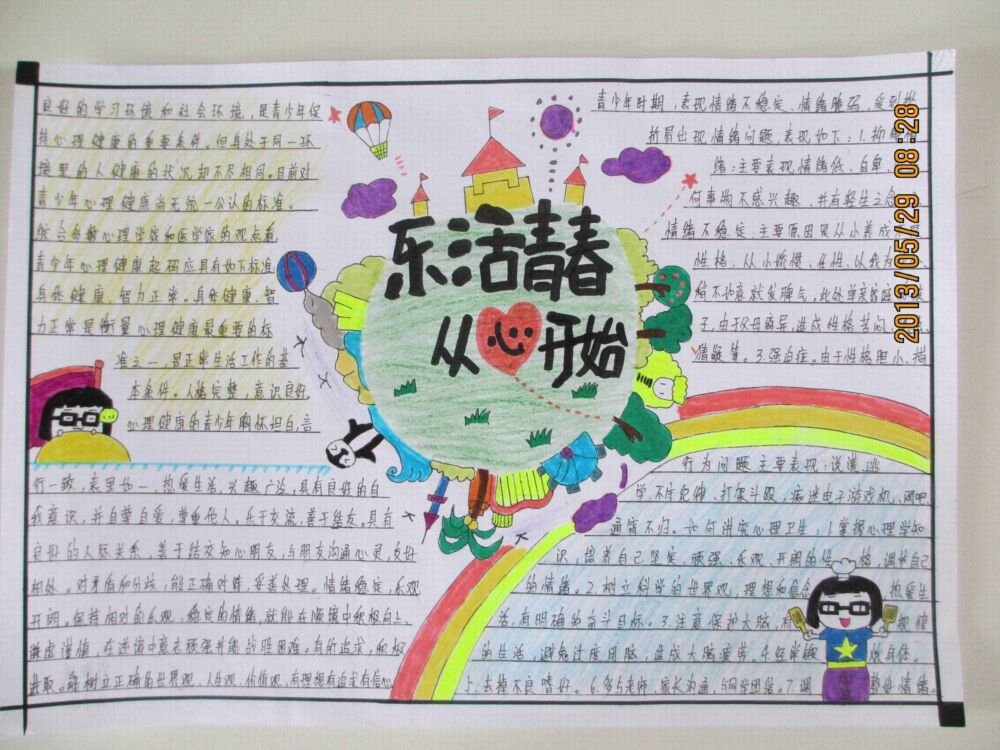 良好的学习环境和社会环境，是青少年保
持心理健康的重要条件。但身处于同一环
境里的人健康的状况却不尽相同。目前对
青少年心理健康尚无统一公认的标准。
综合多数心理学家和医学家的观点看
青少年心理健康起码应具有如下标准
身体健康，智力正常。身体健康，智
力正常是衡量心理健康最重要的标
准之一，是正常生活工作的基
本条件。人格完整，意识良好
心理健康的青少年胸怀坦白，言
行一致，表里如一，热爱生活，兴趣广泛，具有良好的自
我意识，并自尊自爱，尊重他人。乐于交流，善于结友。具有
良好的人际关系，善于结交知心朋友，与朋友沟通心灵，友好
相处。对矛盾和分歧，能正确对待，妥善处理。情绪稳定，乐观
开朗。保持相对的乐观、稳定的情绪，就能在顺境中积极向上
谦虚谨慎，在逆境中意志顽强并能战胜困难。有所追求，积极
进取。能树立正确的世界观，人生观，价值观，有理想有追求有信心
乐活青春
从心开始
青少年时期，表现情绪不稳定、情绪脆弱，受到挫
折易出现情绪问题，表现如下：1.抑郁情
绪：主要表现情绪低、自卑
何事物不感兴趣，并有轻生之念
情绪不稳定：主要原因是从小养成
性格，从小娇惯、任性、以我为
稍不如意就发脾气，此外单亲家庭
子，由于父母离异，造成性格苦闷
猜疑等。3.强迫症。由于性格胆小、拘
行为问题主要表现：说谎、逃
学、不守纪律、打架斗殴，痴迷电子游戏机、网吧
通宵不归。如何讲究心理卫生：1.掌握心理学知
识，培养自己坚定、顽强、乐观、开朗的性格，调节自己
的情绪。2.树立科学的世界观，理想和信念 热爱生
活，有明确的奋斗目标。3.注意保护大脑，有 规律
的生活，避免过度用脑，造成大脑疲劳。4.经常锻 炼身体。
5.去掉不良嗜好。6.多与老师、家长沟通，与同学团结。7.调 整好情绪。
2013/05/29 08:28